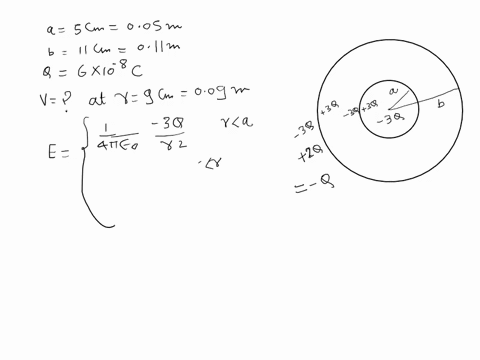 a = 5 Cm = 0.05 m
b = 11 Cm = 0.11 m
Q = 6 × 10^-8 C
V = ? at r = 9 Cm = 0.09 m
E = { 1/4πε0 -3Q/r2 r < a
< r
a
b
-3Q
-3Q +3Q
-3Q +3Q
+2Q
= -Q